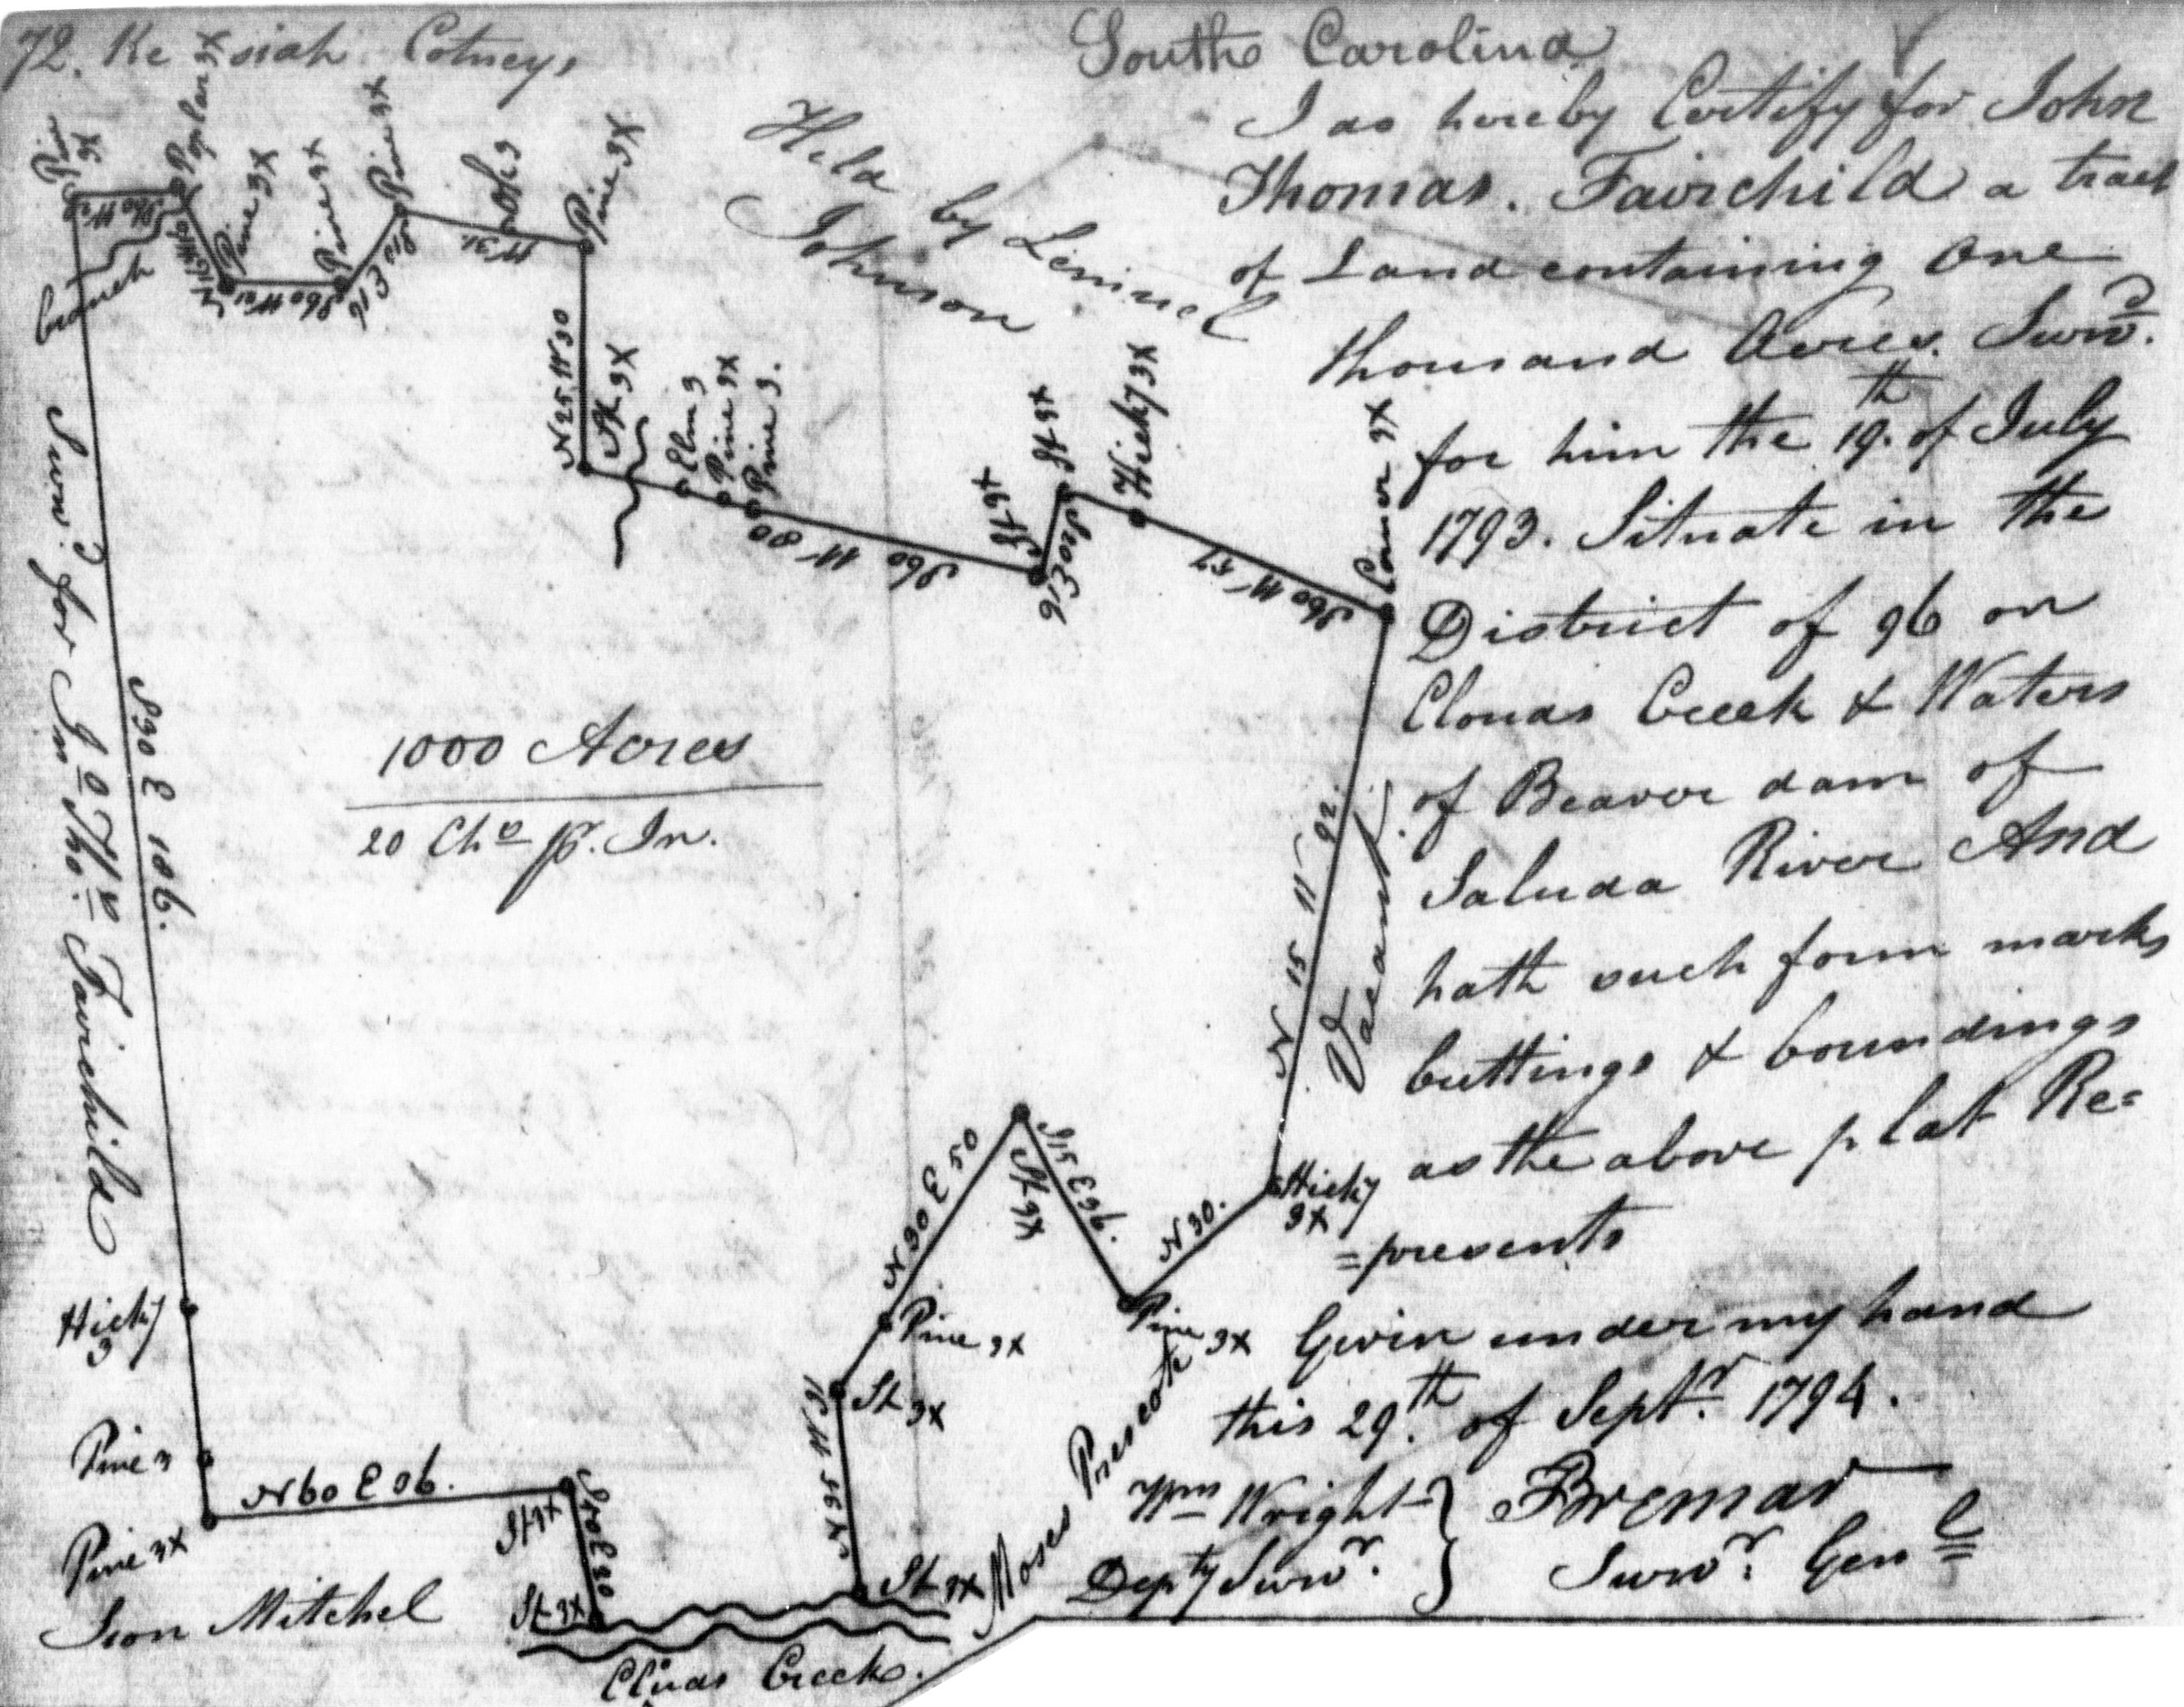 72. Ke ziah Cotneys
South Carolina
I do hereby Certify for John
Thomas. Fairchild a tract
of Land containing One
thousand Acres. Survd.
for him the 19th. of July
1793. Situate in the
District of 96 on
Clouds Creek & Waters
of Beaver dam of
Saluda River And
hath such form marks
buttings & boundings
as the above plat Re=
=presents
Given under my hand
this 29th. of Septr. 1794.
Wm Wright
Depty Survr.
Bremar
Survr. Genl
Held by Lemuel
Johnson
Pine 3X
Poplar 3X
Pine 3X
Pine 3X
Pine 3X
Pine 3X
branch
N 25 W 30
St 3X
Elm 3
Pine 3X
Pine 3.
S60 W 80
St 3X
St 3X
Hicky 3X
S60 W 57
Corner 3X
N 15 W 92.
Vacant
Hicky
3X
N 30.
Pine 3X
St 3X
N 30 E 50
Pine 3X
St 3X
St 3X
Moses Prescott
Clouds Creek.
St 3X
St 3X
N60 E 06.
Pine 3X
Pine 3
Hicky
3
Mitchel
S30 E 106.
Survd. for Jno. Tho. Fairchild
1000 Acres
20 Chs pr. In.